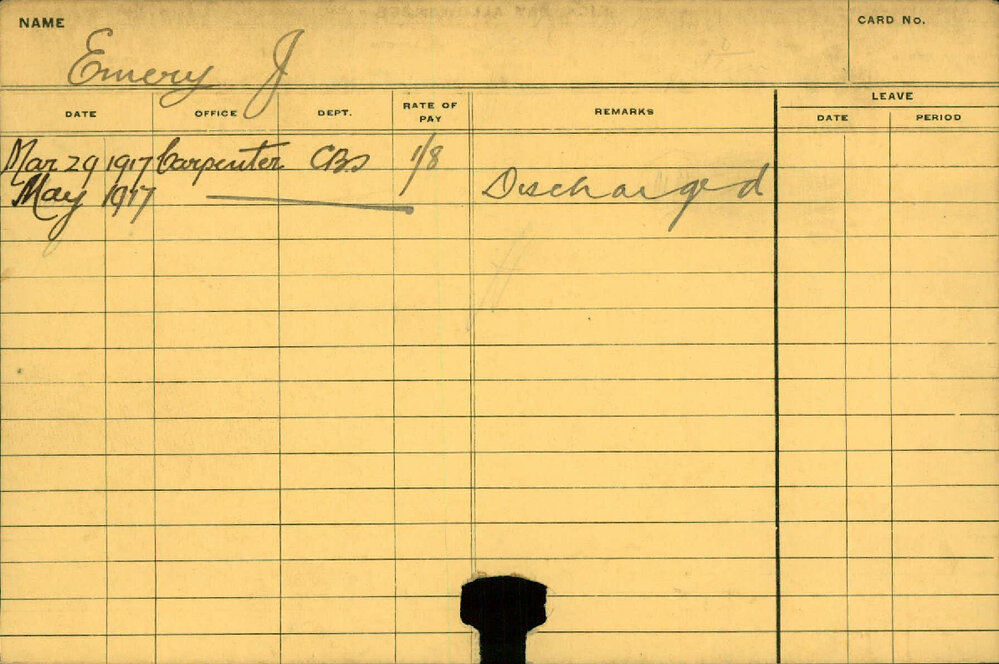 NAME
CARD No.
Emery J
LEAVE
DATE OFFICE DEPT. RATE OF PAY REMARKS DATE PERIOD
Mar 29 1917 Carpenter CBS 1/8
May 1917 Discharged